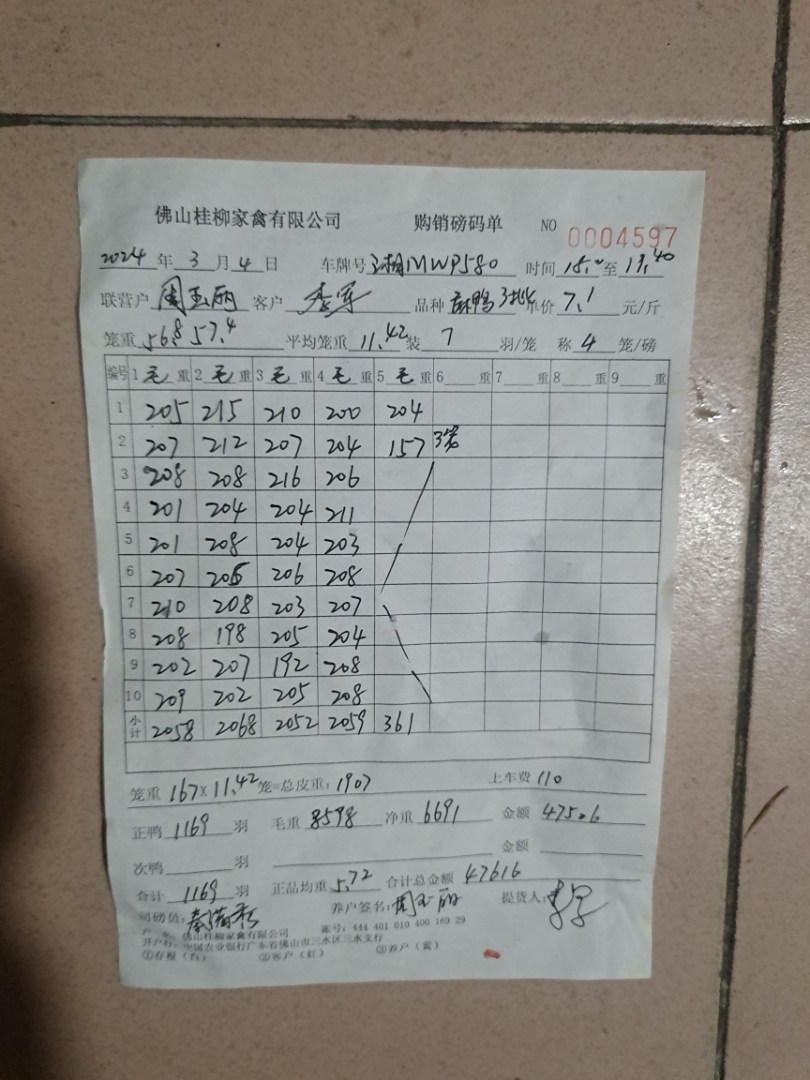 佛山桂柳家禽有限公司 购销磅码单 NO 0004597
2024 年 3 月 4 日 车牌号 MWP580 时间 至 19.40
联营户 周玉丽 客户 李军 品种 麻鸭 单价 7.1 元/斤
笼重 56.8 57.4 平均笼重 11.42 装 7 羽/笼 称 4 笼/磅
编号 1 毛 重 2 毛 重 3 毛 重 4 毛 重 5 毛 重 6 重 7 重 8 重 9 重
1 205 215 210 200 204
2 207 212 207 204 157 3笼
3 208 208 216 206
4 201 204 204 211
5 201 208 204 203
6 207 206 206 208
7 210 208 203 207
8 208 198 205 204
9 202 207 192 208
10 209 202 205 208
小计 2058 2068 2052 2059 361
笼重 167×11.42 笼=总皮重: 1907 上车费 110
正鸭 1169 羽 毛重 8598 净重 6691 金额 47506
次鸭 羽 金额
合计 1169 羽 正品均重 5.72 合计总金额 47616
司磅员: 养户签名: 周玉丽 提货人: 李军
户 名: 佛山桂柳家禽有限公司 账号: 444 401 010 400 169 29
开户行: 中国农业银行广东省佛山市三水区三水支行
①存根（白） ②客户（红） ③养户（黄）